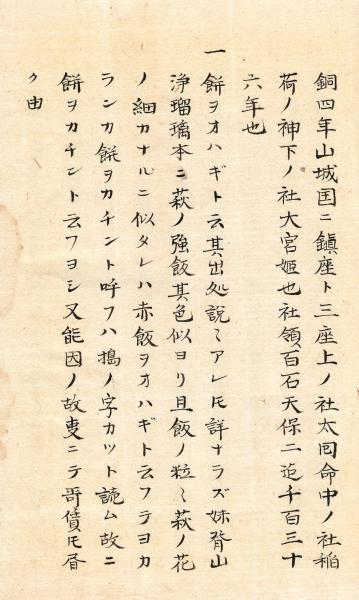 銅四年山城国ニ鎮座ト三座上ノ社太田命中ノ社稲
荷ノ神下ノ社大宮姫也社領百石天保二迄千百三十
六年也
一餅ヲオハギト云其出処説〻アレ𪜈詳ナラズ妹脊山
浄瑠璃本ニ萩ノ強飯其色似ヨリ且飯ノ粒〻萩ノ花
ノ細カナルニ似タレハ赤飯ヲオハギト云フテヨカ
ランカ餅ヲカチント呼フハ搗ノ字カツト読ム故ニ
餅ヲカチント云フヨシ又能因ノ故事ニテ哥賃𪜈
ク由